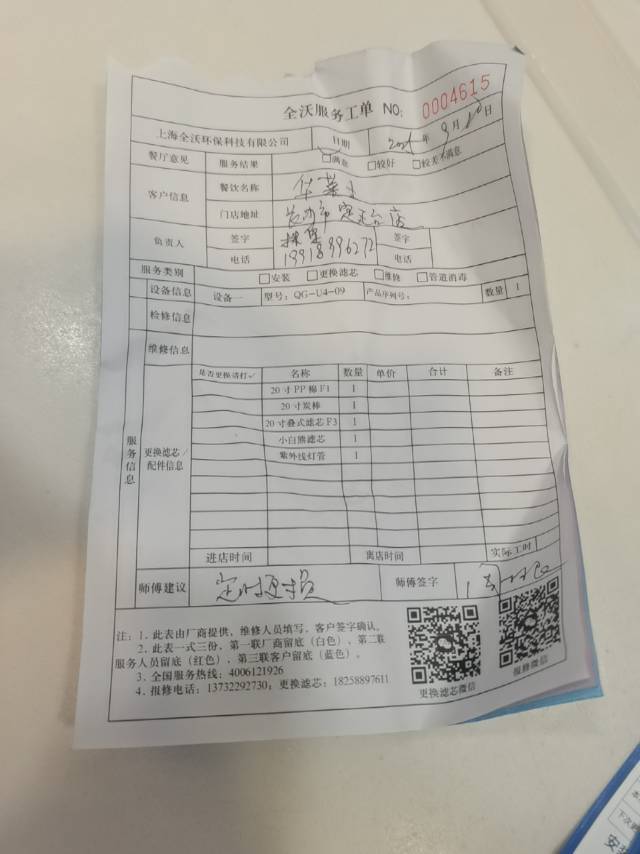 全沃服务工单 NO: 0004615
上海全沃环保科技有限公司 日期 年9月 日
餐厅意见 服务结果 满意 较好 较差不满意
客户信息 餐饮名称 华莱士
门店地址
负责人 签字 签字
电话 电话
服务类别 安装 更换滤芯 维修 管道消毒
设备信息 设备一 型号: QG-U4-09 产品序列号: 数量 1
检修信息
维修信息
服务信息
更换滤芯/配件信息
是否更换请打✓ 名称 数量 单价 合计 备注
20寸PP棉F1 1
20寸炭棒 1
20寸叠式滤芯F3 1
小白熊滤芯 1
紫外线灯管 1
进店时间 离店时间 实际工时
师傅建议 师傅签字
注: 1. 此表由厂商提供, 维修人员填写, 客户签字确认。
2. 此表一式三份, 第一联厂商留底 (白色), 第二联
服务人员留底 (红色), 第三联客户留底 (蓝色)。
3. 全国服务热线: 4006121926
4. 报修电话: 13732292730; 更换滤芯: 18258897611
更换滤芯微信
报修微信
下次
安装